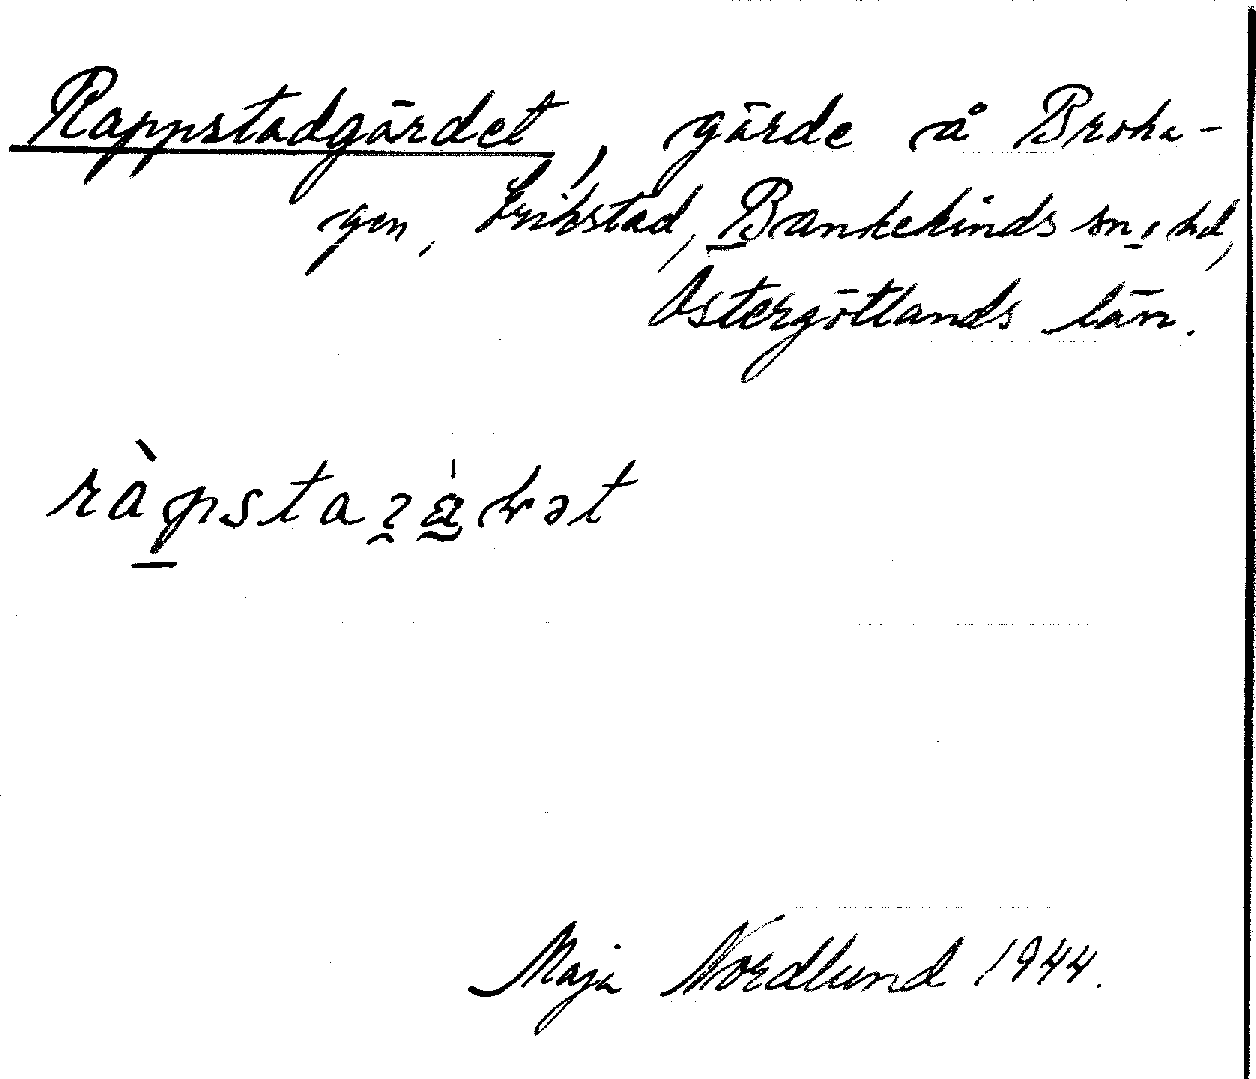 Rappstadgärdet, gärde å Broha-
gen, Erikstad, Bankekinds sn, hd,
Östergötlands län.
Maja Nordlund 1944.